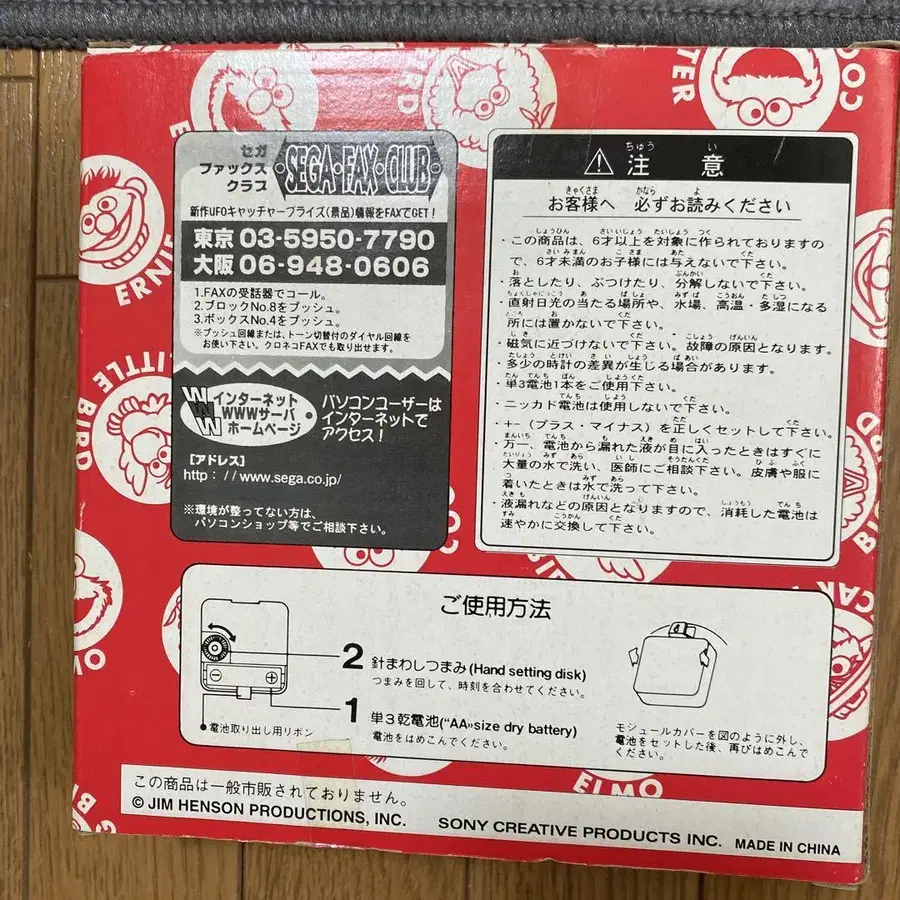 BIRD
TER
COO
ERNIE
LITTLE BIRD
セガ
ファックス
クラブ
SEGA・FAX・CLUB
新作UFOキャッチャープライズ(景品)情報をFAXでGET!
東京 03-5950-7790
大阪 06-948-0606
1.FAXの受話器でコール。
2.ブロックNo.8をプッシュ。
3.ボックスNo.4をプッシュ。
※プッシュ回線または、トーン切替付のダイヤル回線を
お使い下さい。クロネコFAXでも取り出せます。
WWW
インターネット
WWWサーバ
ホームページ
パソコンユーザーは
インターネットで
アクセス!
[アドレス]
http://www.sega.co.jp/
※環境が整ってない方は、
パソコンショップ等でご相談下さい。
⚠ 注意
お客様へ 必ずお読みください
・この商品は、6才以上を対象に作られておりますの
で、6才未満のお子様には与えないで下さい。
・落としたり、ぶつけたり、分解しないで下さい。
・直射日光の当たる場所や、水場、高温・多湿になる
所には置かないで下さい。
・磁気に近づけないで下さい。故障の原因となります。
多少の時計の差異が生じる場合があります。
・単3電池1本をご使用下さい。
・ニッカド電池は使用しないで下さい。
・+-(プラス・マイナス)を正しくセットして下さい。
万一、電池から漏れた液が目に入ったときはすぐに
大量の水で洗い、医師にご相談下さい。皮膚や服に
着いたときは水で洗って下さい。
・液漏れなどの原因となりますので、消耗した電池は
速やかに交換して下さい。
ご使用方法
2 針まわしつまみ(Hand setting disk)
つまみを回して、時刻を合わせてください。
1 単3乾電池(“AA»size dry battery)
電池をはめこんでください。
●電池取り出し用リボン
モジュールカバーを図のように外し、
電池をセットした後、再びはめこんで
ください。
ELMO
この商品は一般市販されておりません。
© JIM HENSON PRODUCTIONS, INC.
SONY CREATIVE PRODUCTS INC.
MADE IN CHINA